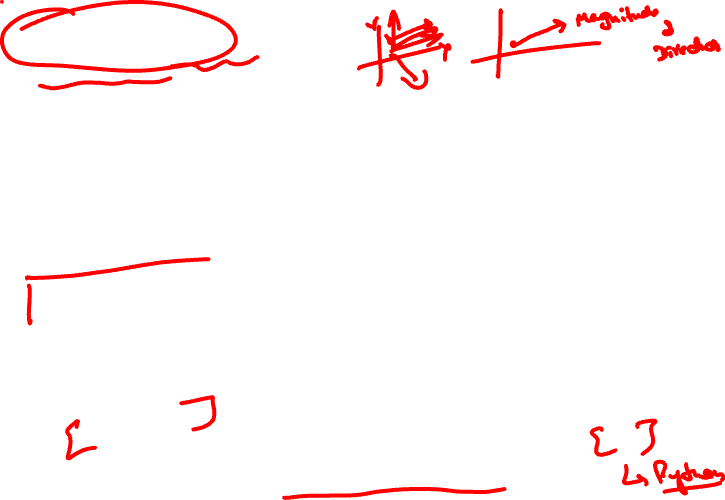 Magnitude
&
Direction
[ ]
[ ]
↳ Python